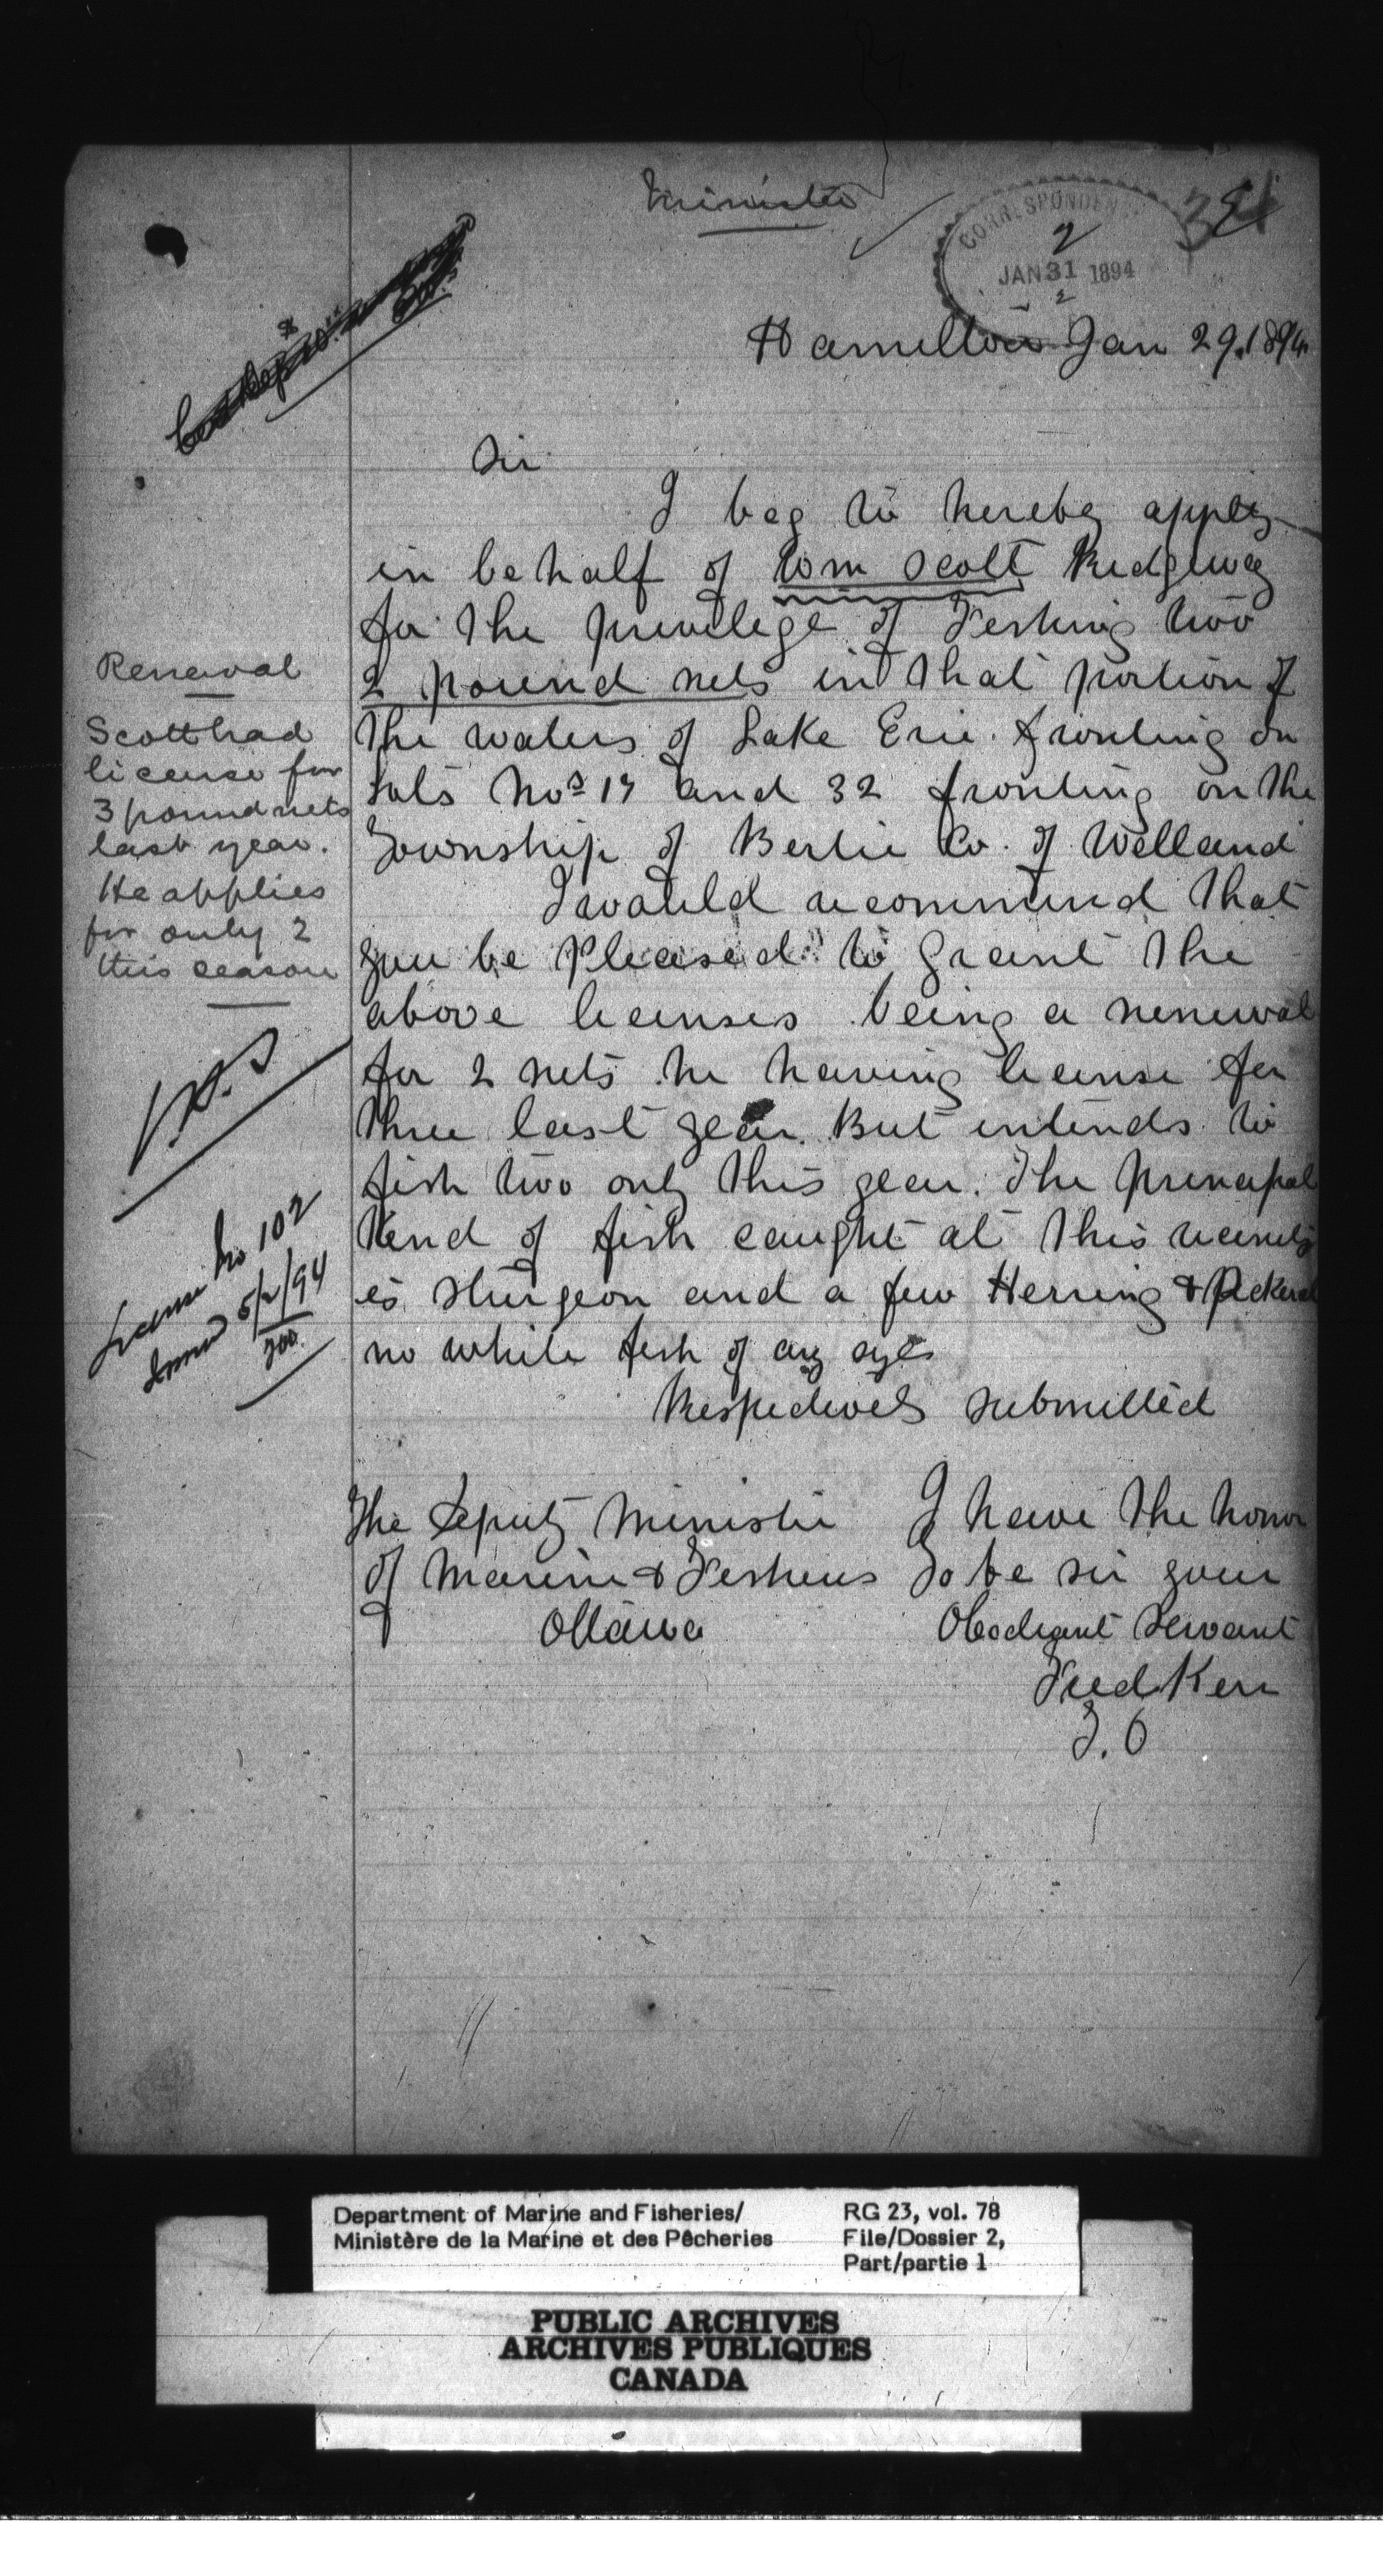 Minister
CORRESPONDEN
2
JAN 31 1894
2
Hamilton Jan 29. 1894
Sir
I beg to hereby apply
in behalf of Wm Scott Ridgeway
for the privilege of Fishing two
2 pound nets in that portion of
the waters of Lake Erie fronting on
Lots Nos 17 and 32 fronting on the
Township of Bertie Co. of Welland
I would recommend that
you be Pleased to Grant the
above licenses being a renewal
for 2 nets he having license for
three last year. But intends to
fish two only this year. The principal
Kind of fish caught at this
is Sturgeon and a few Herring & Pickeral
no white fish of any
Respectively submitted
I have the honor
To be sir your
Obediant Servant
Fred Kerr
F. O
The Deputy Minister
of Marine & Fisheries
Ottawa
Renewal
Scott had
license for
3 pound nets
last year.
He applies
for only 2
this season
License No 102
Issued 5/2/94
Department of Marine and Fisheries/
Ministère de la Marine et des Pêcheries
RG 23, vol. 78
File/Dossier 2,
Part/partie 1
PUBLIC ARCHIVES
ARCHIVES PUBLIQUES
CANADA